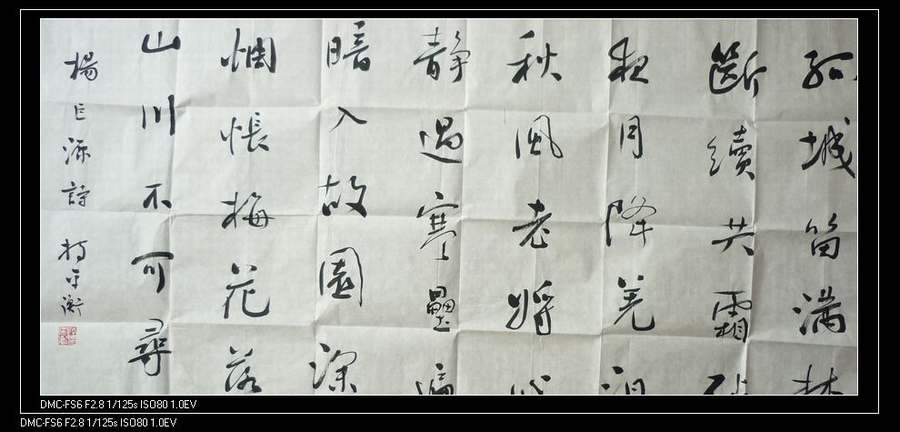 孤城笛满林
斷續共霜砧
夜月降羌泪
秋風老將心
静過寒壘遍
暗入故園深
惆悵梅花落
山川不可尋
楊巨源詩
DMC-FS6 F2.8 1/125s ISO80 1.0EV
DMC-FS6 F2.8 1/125s ISO80 1.0EV